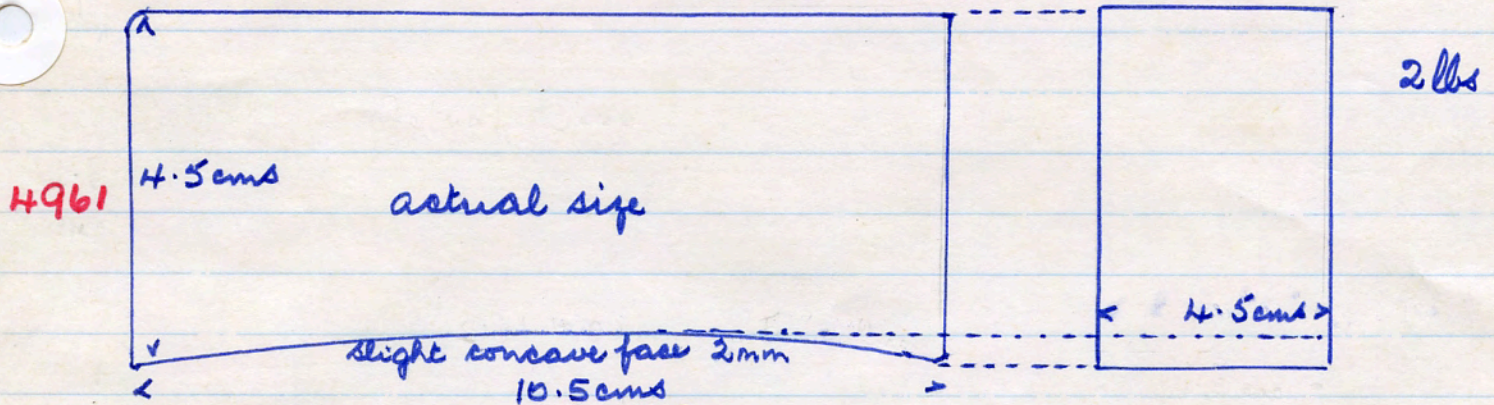 2 lbs
4961
4.5 cms
actual size
4.5 cms
slight concave face 2mm
10.5 cms